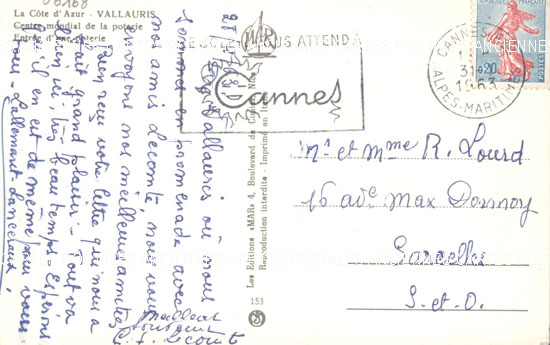 La Côte d'Azur - VALLAURIS
Centre mondial de la poterie
Entrée d'une poterie
De Vallauris où nous
sommes en promenade avec
nos amis Lecomte, nous vous
envoyons nos meilleures amitiés
Bien reçu votre lettre qui nous a
fait grand plaisir - Tout va
bien, très beau temps - Espérons
qu'il en est de même pour vous -
Tous -
Meilleur
souvenir
Lecomte
153
Les Editions «MAR» 4, Boulevard de Cimiez, Nice
Reproduction interdite - Imprimé en
MAR
VOUS ATTEND
Cannes
CANNES
31-8-20
1963
ALPES-MARITIMES
Mr et Mme R. Lourd
16 ave Max Dormoy
Sarcelles
S-et-O.